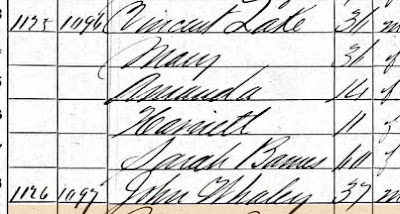 1125 1096 Vincent Lake 36 m
Mary 36 f
Amanda 14 f
Harriett 11 f
Sarah Barnes 60 f
1126 1097 John Whaley 37 m